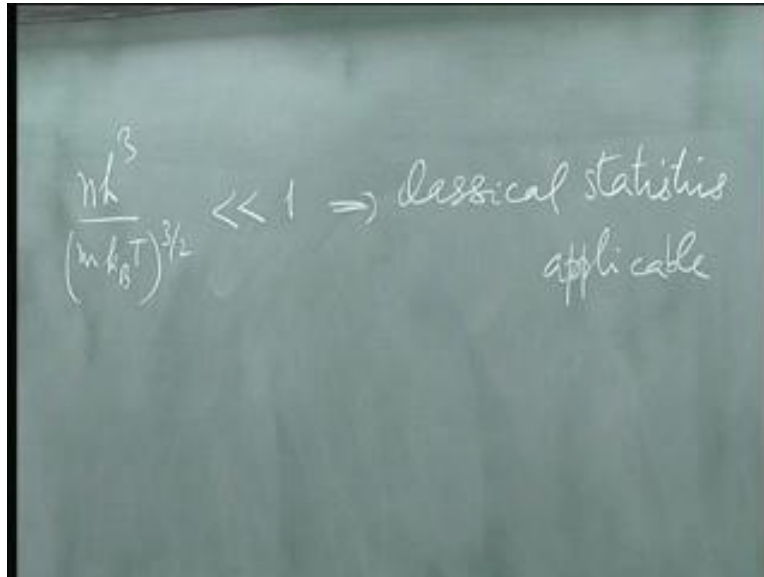 nh³/(mk_BT)^{3/2} << 1 ⇒ classical statistics
applicable